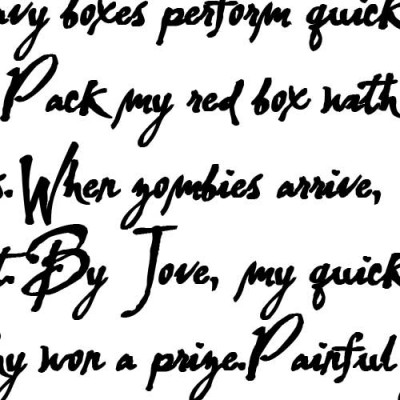 avy boxes perform quick
Pack my red box with
s. When zombies arrive,
t. By Jove, my quick
hy won a prize. Painful